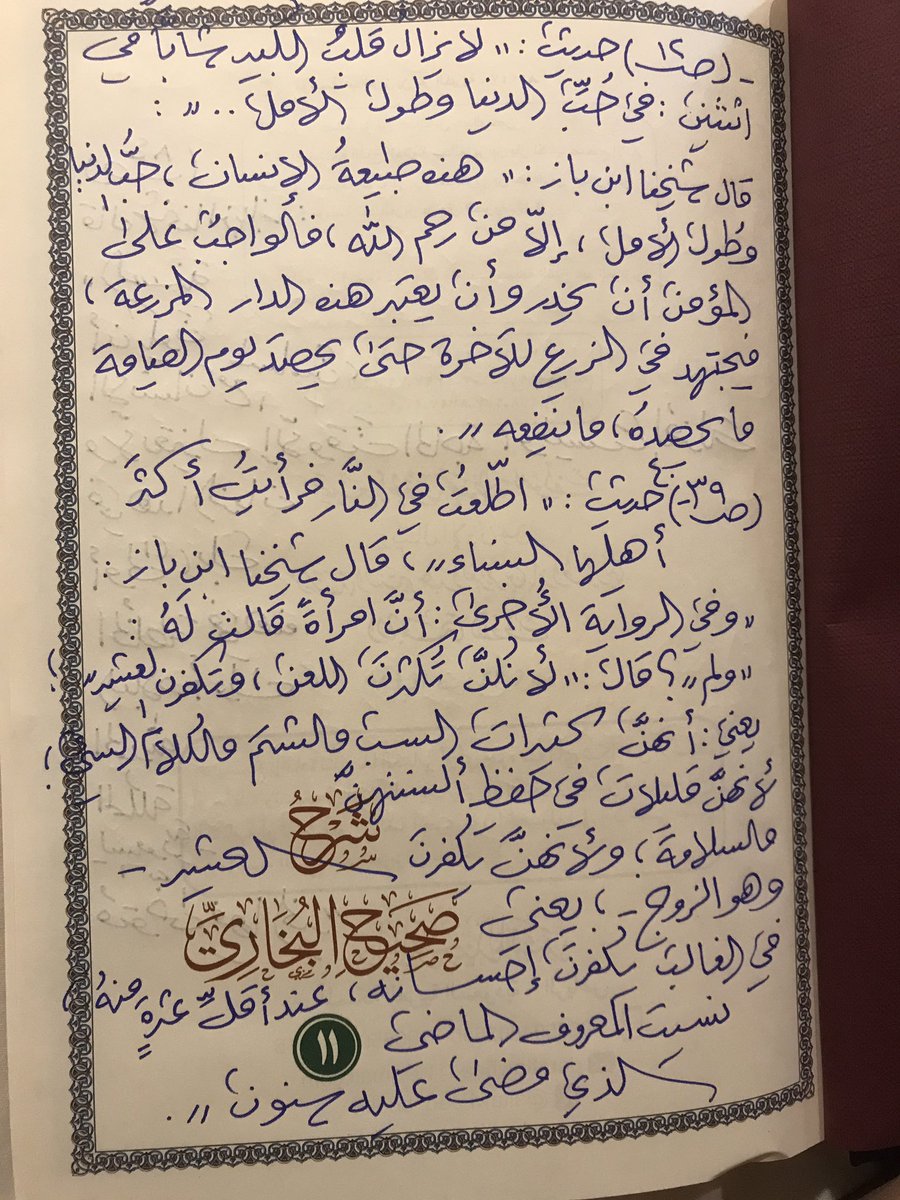 - (ص١٢) حديث: "لا يزال قلبُ الكبير شاباً في
اثنين: في حُبِّ الدنيا وطول الأمل..":
قال شيخنا ابن باز: "هذه طبيعةُ الإنسان، حبُّ الدنيا
وطُول الأمل، إلّا من رحم الله، فالواجبُ على
المؤمن أن يحذر وأن يعتبر هذه الدار المزرعة،
فيجتهد في الزرع للآخرة حتى يحصد يوم القيامة
ما يحصدهُ، ما ينفعه".
(ص٣٩) حديث: "اطّلعتُ في النَّار فرأيتُ أكثرَ
أهلها النساء"، قال شيخنا ابن باز:
"وفي الرواية الأُخرى: أنَّ امرأةً قالت لهُ:
"ولم"؟ قال: "لأنكُنَّ تُكثرنَ اللعن، وتكفرن العشير"؛
يعني: أنهنَّ كثيرات السب والشتم والكلام السيئ؛
لأنهنَّ قليلات في حفظ ألسنتهنَّ
شَرْحُ
والسلامة، ولأنهنَّ يكفرن العشير -
وهو الزوج -، يعني
صَحِيحِ البُخَارِيِّ
في الغالب يكفرنَ إحسانه، عند أقلِّ عثرةٍ منهُ،
نسيت المعروف الماضي
١١
الذي مضى عليه سنون".